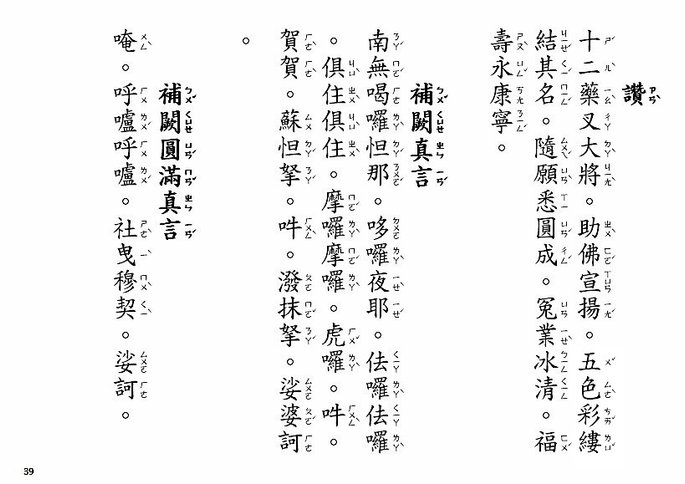 讚
十二藥叉大將。助佛宣揚。五色彩縷
結其名。隨願悉圓成。冤業冰清。福
壽永康寧。
補闕真言
南無喝囉怛那。哆囉夜耶。佉囉佉囉
。俱住俱住。摩囉摩囉。虎囉。吽。
賀賀。蘇怛拏。吽。潑抹拏。娑婆訶
。
補闕圓滿真言
唵。呼嚧呼嚧。社曳穆契。娑訶。
39